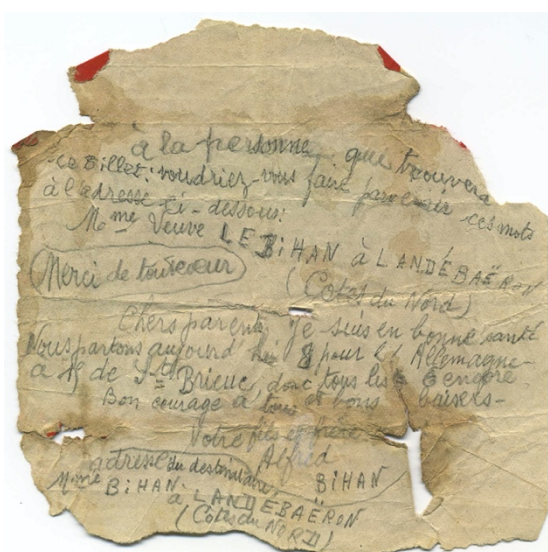 à la personne qui trouvera
ce Billet: voudriez-vous faire parvenir ces mots
à l'adresse ci-dessous:
Mme Veuve LE BiHAN à LANDÉBAËRON
(Cotes du Nord)
Merci de tout cœur
Chers parents, Je suis en bonne santé
Nous partons aujourd'hui 8 pour l'Allemagne-
à de St Brieuc, donc tous les 6 encore
Bon courage à tous et bons baisers-
Votre fils et frère
Alfred
BiHAN
adresse du destinataire,
Mme BiHAN.
à LANDÉBAËRON
(Cotes du NORD)